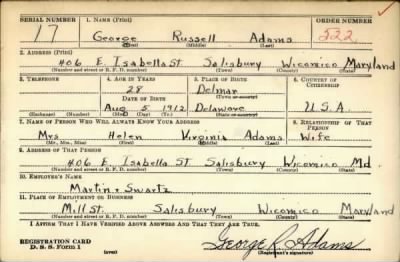 SERIAL NUMBER 1. NAME (Print) ORDER NUMBER
17 George Russell Adams 522
(First) (Middle) (Last)
2. ADDRESS (Print)
406 E. Isabella St. Salisbury Wicomico Maryland
(Number and street or R. F. D. number) (Town) (County) (State)
3. TELEPHONE 4. AGE IN YEARS 5. PLACE OF BIRTH 6. COUNTRY OF CITIZENSHIP
28 Delmar
DATE OF BIRTH (Town or county)
Aug 5 1912 Delaware U.S.A.
(Exchange) (Number) (Mo.) (Day) (Yr.) (State or country)
7. NAME OF PERSON WHO WILL ALWAYS KNOW YOUR ADDRESS 8. RELATIONSHIP OF THAT PERSON
Mrs Helen Virginia Adams Wife
(Mr., Mrs., Miss) (First) (Middle) (Last)
9. ADDRESS OF THAT PERSON
406 E. Isabella St Salisbury Wicomico Md.
(Number and street or R. F. D. number) (Town) (County) (State)
10. EMPLOYER'S NAME
Martin + Swartz
11. PLACE OF EMPLOYMENT OR BUSINESS
Mill St. Salisbury Wicomico Maryland
(Number and street or R. F. D. number) (Town) (County) (State)
I AFFIRM THAT I HAVE VERIFIED ABOVE ANSWERS AND THAT THEY ARE TRUE.
REGISTRATION CARD George R. Adams
D. S. S. Form 1 (over) (Registrant's signature)